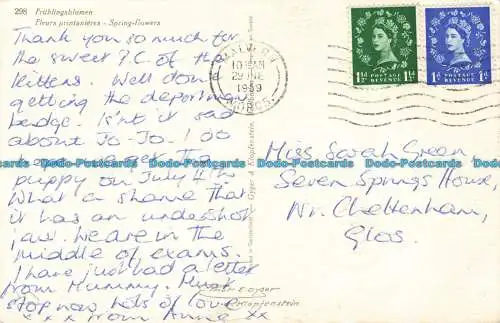 298 Frühlingsblumen
Fleurs printanières - Spring-flowers
Thank you so much for
the sweet P.C. of the
kittens. Well done
getting the deportment
badge. Isn't it sad
about Jo-Jo! I do
puppy on July 4th
What a shame that
it has an undershot
jaw. We are in the
middle of exams.
I have just had a letter
from Mummy. Must
stop now lots of love
x x x from Anne xx
MALVERN
10 AM
29 JNE
1959
WORCS.
1½D POSTAGE REVENUE 1½D
1D POSTAGE REVENUE 1D
Miss Sarah Green
Seven Springs House,
Nr. Cheltenham,
Glos.
Klopfenstein
Bado-Postcards